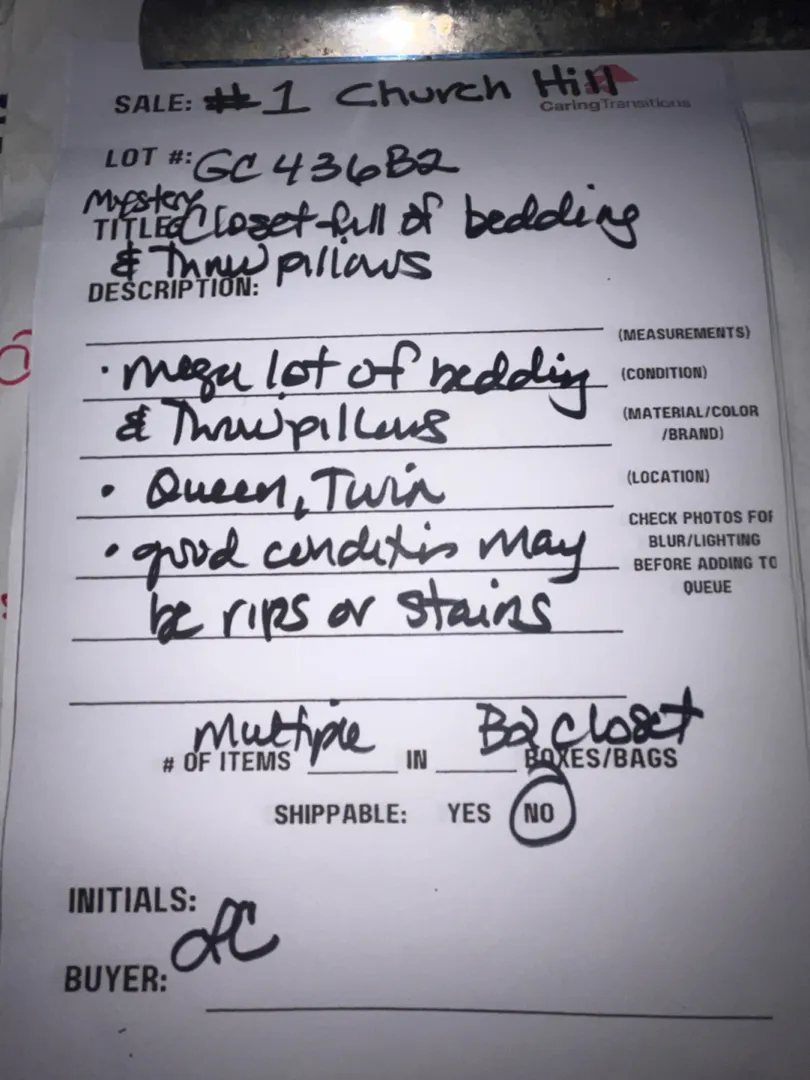 SALE: #1 Church Hill
CaringTransitions
LOT #: GC436B2
Mystery
TITLE: Closet full of bedding
& Throw pillows
DESCRIPTION:
(MEASUREMENTS)
• mega lot of bedding (CONDITION)
& Throw pillows (MATERIAL/COLOR
/BRAND)
• Queen, Twin (LOCATION)
• good condition may
be rips or stains
CHECK PHOTOS FOR
BLUR/LIGHTING
BEFORE ADDING TO
QUEUE
Multiple B2 closet
# OF ITEMS ______ IN ______ BOXES/BAGS
SHIPPABLE: YES NO
INITIALS:
BUYER: